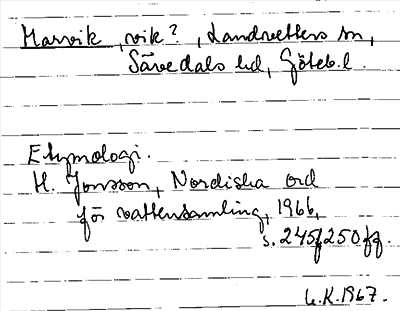 Harvik, vik?, Landvetters sn,
Sävedals hd, Göteb.l.
Etymologi.
H. Jonsson, Nordiska ord
för vattensamling, 1966,
s. 245f, 250ff.
G.K. 1967.